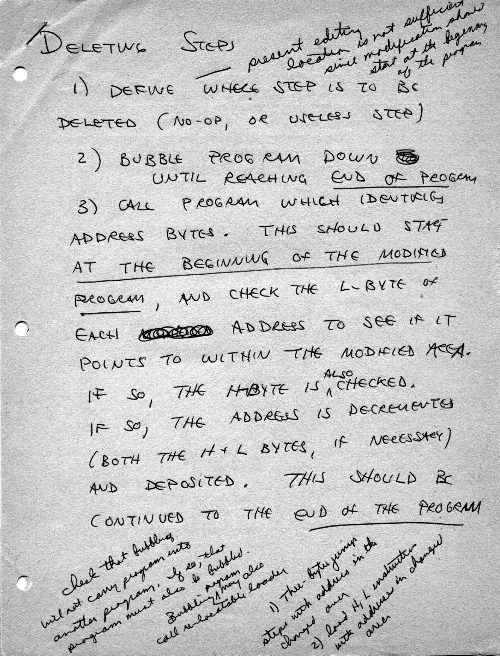 DELETING STEPS
present editing
location is not sufficient
since modification should
start at the beginning
of the program
1) DEFINE WHERE STEP IS TO BE
DELETED (NO-OP, OR USELESS STEP)
2) BUBBLE PROGRAM DOWN
UNTIL REACHING END OF PROGRAM
3) CALL PROGRAM WHICH IDENTIFIES
ADDRESS BYTES. THIS SHOULD START
AT THE BEGINNING OF THE MODIFIED
PROGRAM, AND CHECK THE L-BYTE OF
EACH ADDRESS TO SEE IF IT
POINTS TO WITHIN THE MODIFIED AREA.
IF SO, THE H-BYTE IS ALSO CHECKED.
IF SO, THE ADDRESS IS DECREMENTED
(BOTH THE H + L BYTES, IF NECESSARY)
AND DEPOSITED. THIS SHOULD BE
CONTINUED TO THE END OF THE PROGRAM
check that bubbling
will not carry program into
another program. If so, that
program must also be bubbled.
Bubbling program may also
call relocatable loader
1) Three-byte jump
steps with address in the
changed area
2) load H, L instruction
with address in changed
area